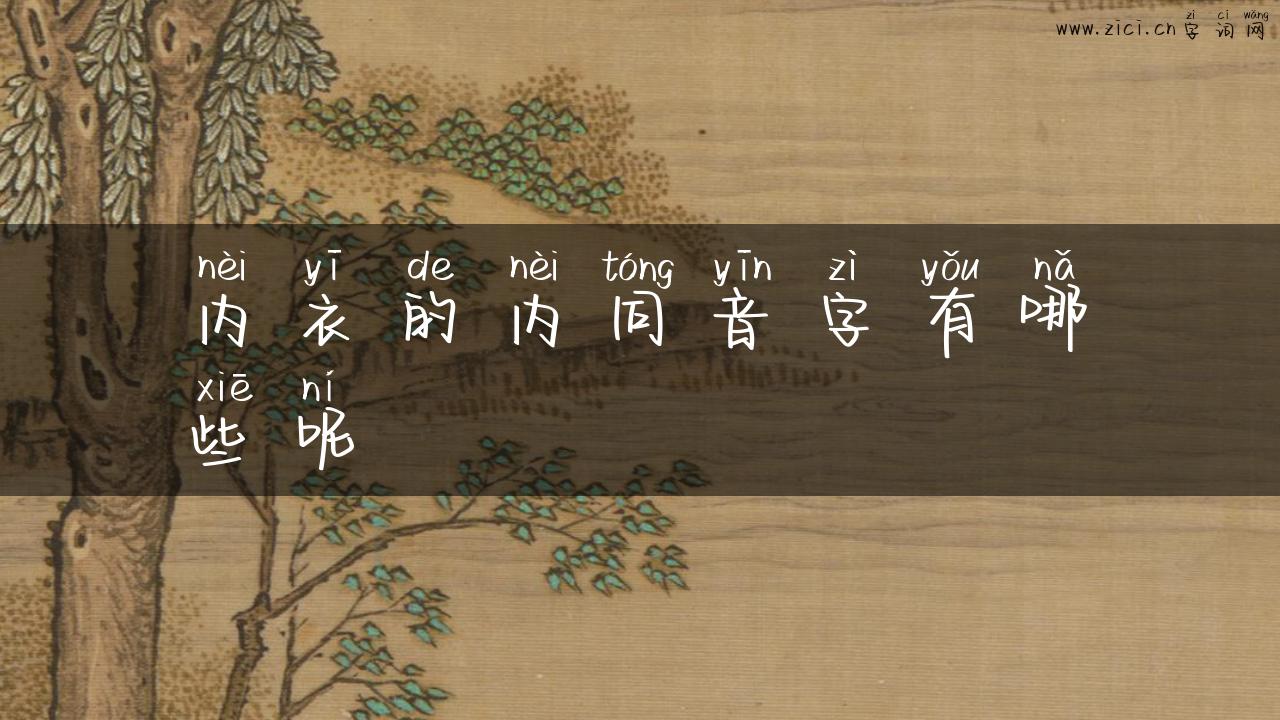 zì cí wǎng
www.zici.cn 字词网
nèi yī de nèi tóng yīn zì yǒu nǎ
内衣的内同音字有哪
xiē ní
些呢